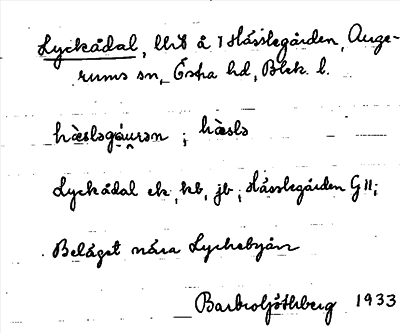 Lyckådal, lht å 1 Hässlegården, Auge-
rums sn, Östra hd, Blek. l.
hæslǝgáurǝn ; hæslǝ
Lyckådal ek, kb, jb, Hässlegården G II;
Beläget nära Lyckebyån
Barbro Göthberg 1933